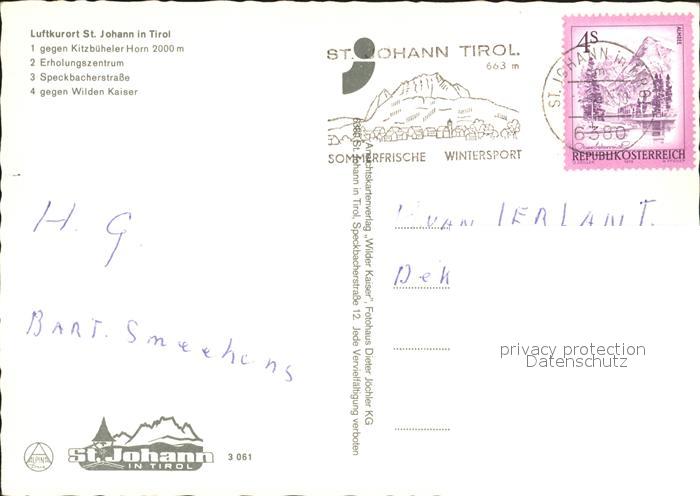 Luftkurort St. Johann in Tirol
1 gegen Kitzbüheler Horn 2000 m
2 Erholungszentrum
3 Speckbacherstraße
4 gegen Wilden Kaiser
ST. JOHANN TIROL.
663 m
SOMMERFRISCHE WINTERSPORT
4s
ALMSEE
ST. JOHANN in TIROL
6380
REPUBLIK ÖSTERREICH
H. G.
BART. Smeekens
Ansichtskartenverlag „Wilder Kaiser", Fotohaus Dieter Jöchler KG
6380 St. Johann in Tirol, Speckbacherstraße 12. Jede Vervielfältigung verboten
VAN
Dek
privacy protection
Datenschutz
ALPINA
St. Johann
IN TIROL
3 061